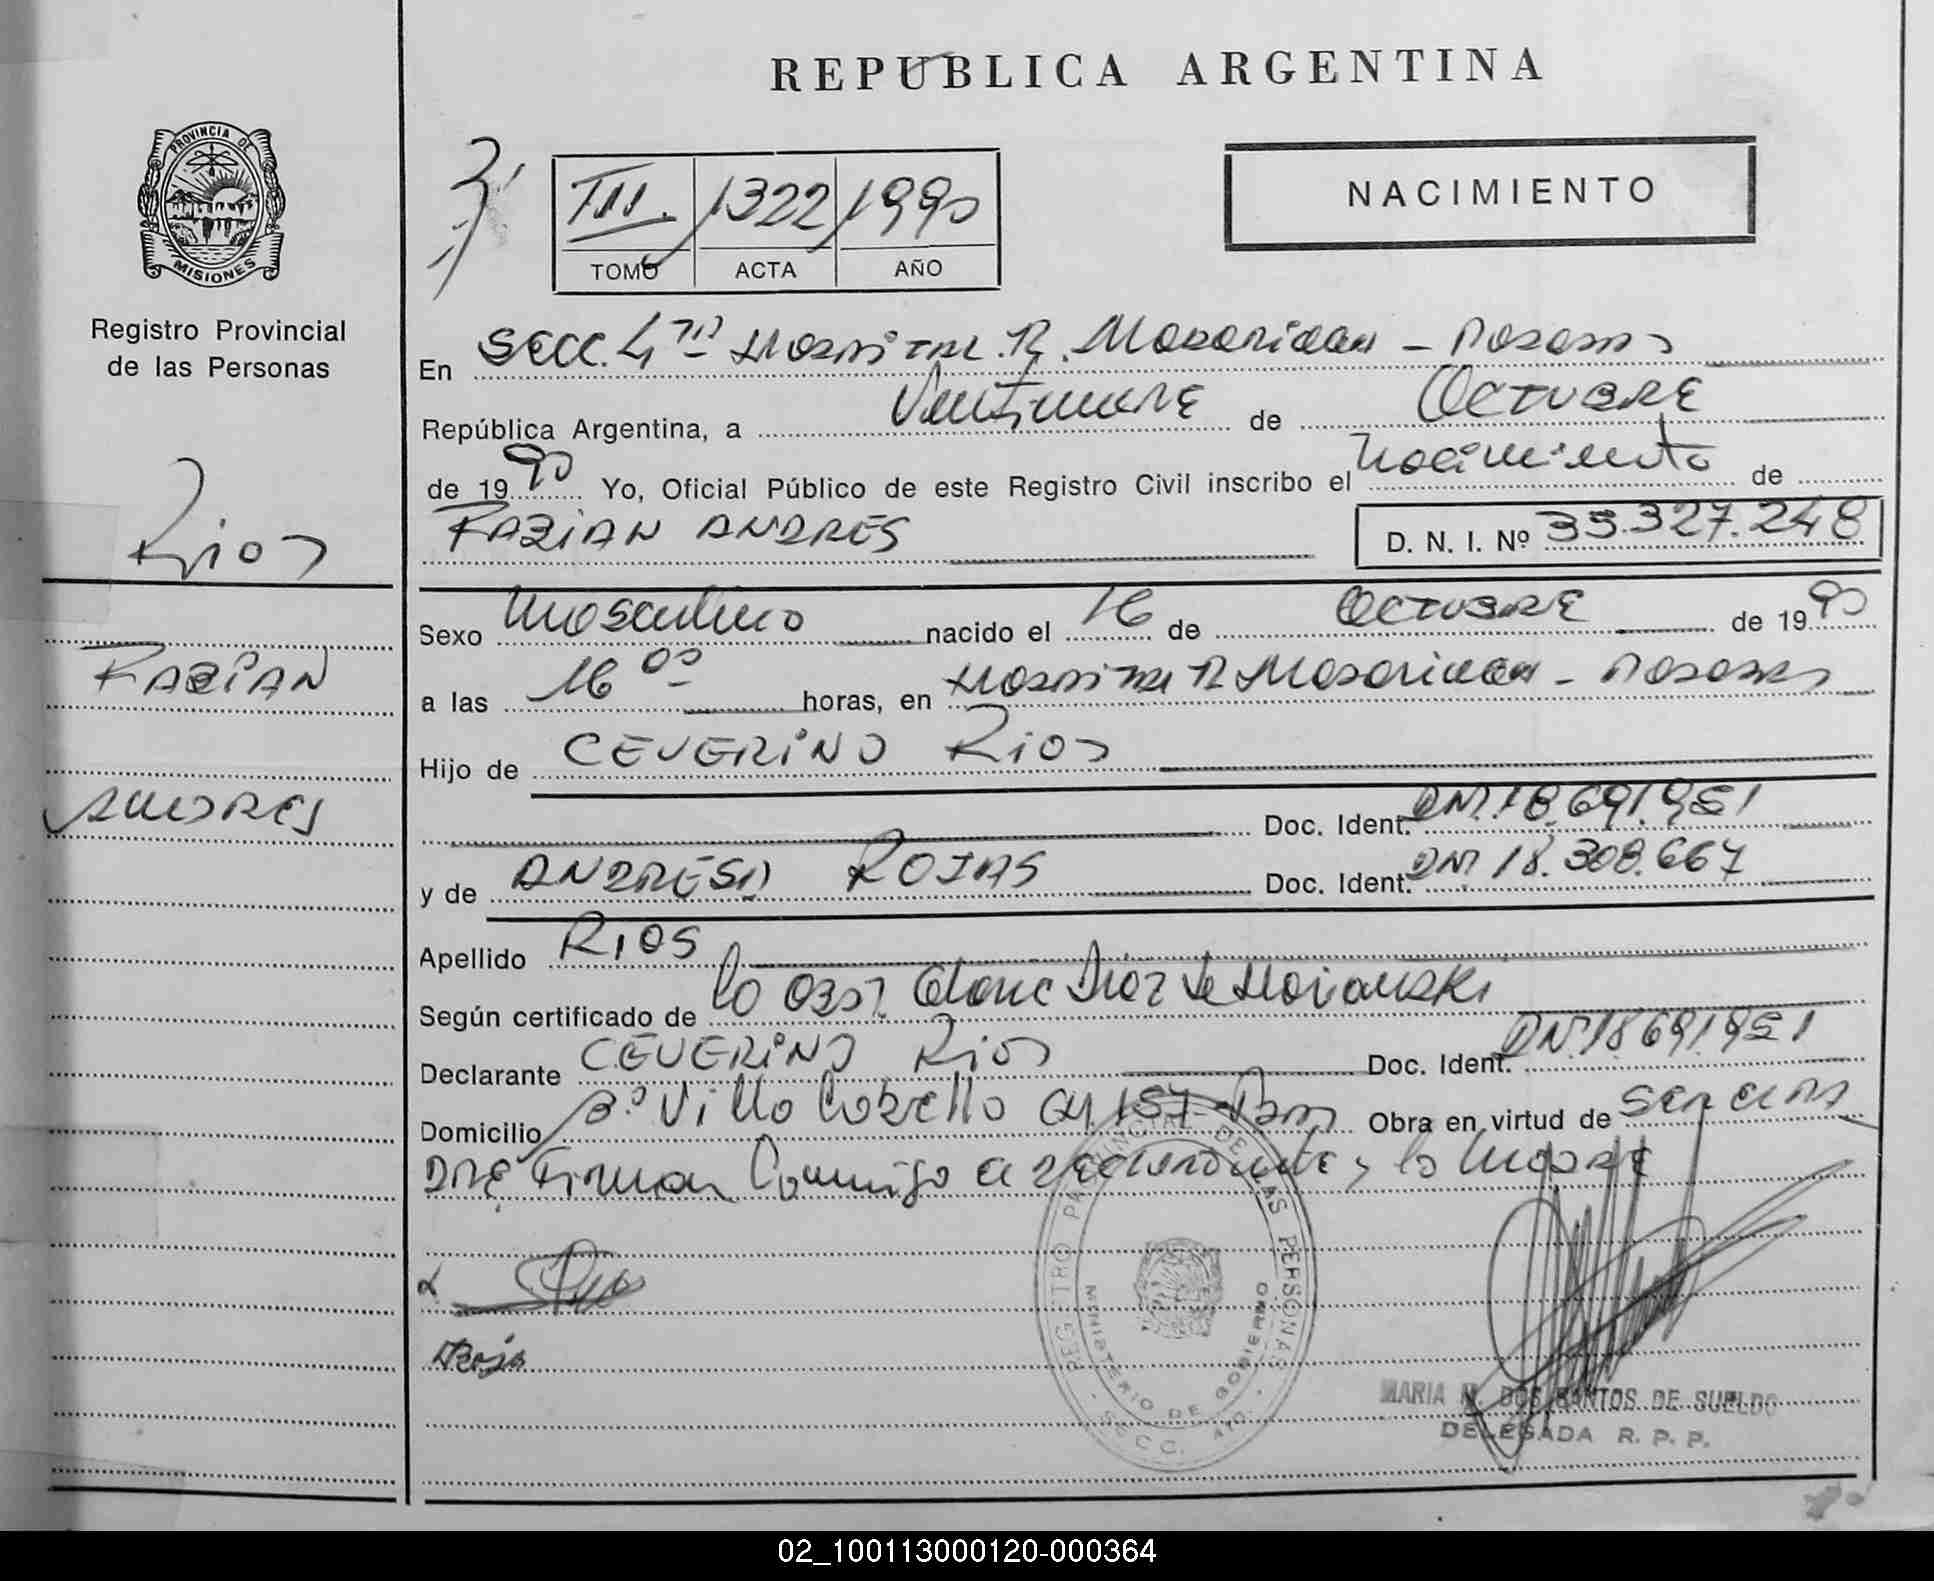 REPUBLICA ARGENTINA
PROVINCIA DE
MISIONES
Registro Provincial
de las Personas
III 1322 1990
TOMO ACTA AÑO
NACIMIENTO
En Secc. 4ta Hospital R. Madariaga - Posadas
República Argentina, a Veintinueve de Octubre
de 1990 Yo, Oficial Público de este Registro Civil inscribo el Nacimiento de
FABIAN ANDRES D. N. I. Nº 35.327.248
Rios
FABIAN
ANDRES
Sexo Masculino nacido el 16 de Octubre de 1990
a las 16 00 horas, en Hospital R Madariaga - Posadas
Hijo de CEVERINO Rios
Doc. Ident. DNI. 18.691.951
y de ANDRESA ROJAS Doc. Ident. DNI 18.308.667
Apellido RIOS
Según certificado de la Obst.
Declarante CEVERINO Rios Doc. Ident. DNI. 18691951
Domicilio Bº Villa 157 Obra en virtud de
Firman Conmigo el declarante y la Madre
REGISTRO PROVINCIAL DE LAS PERSONAS
MINISTERIO DE GOBIERNO
SECC. 4TO.
MARIA N. DOS SANTOS DE SUELDO
DELEGADA R. P. P.
02_100113000120-000364